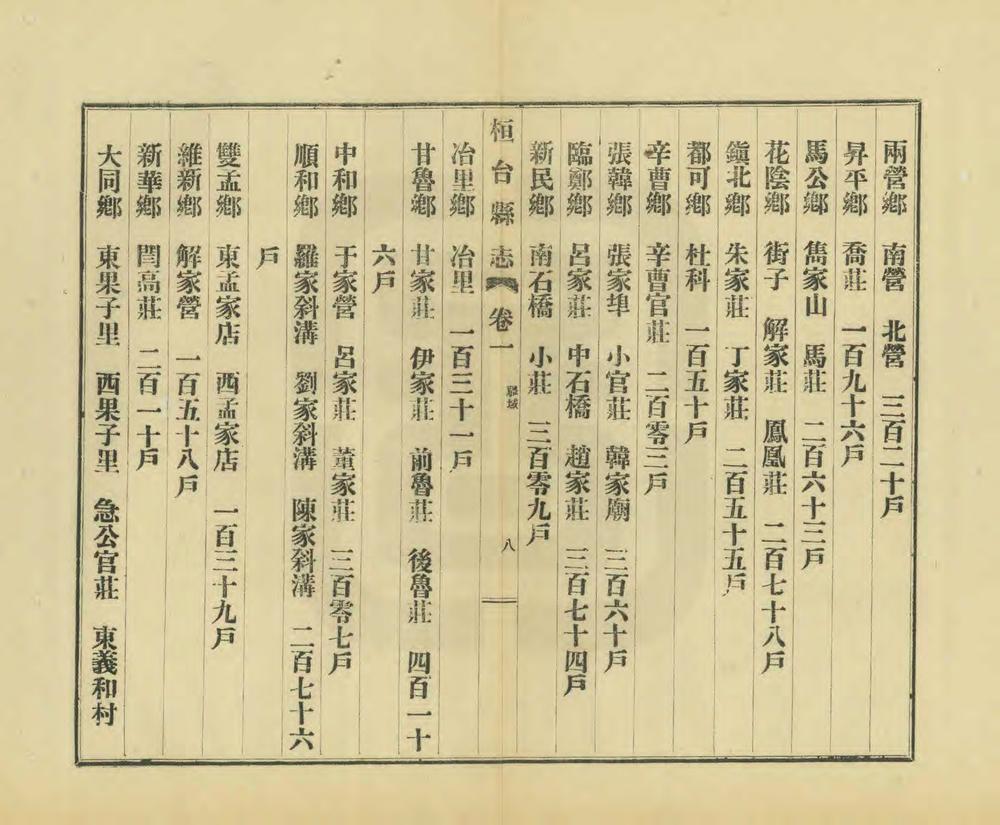 兩營鄉 南營 北營 三百二十戶
昇平鄉 喬莊 一百九十六戶
馬公鄉 雋家山 馬莊 二百六十三戶
花陰鄉 街子 解家莊 鳳凰莊 二百七十八戶
鎭北鄉 朱家莊 丁家莊 二百五十五戶
都可鄉 杜科 一百五十戶
辛曹鄉 辛曹官莊 二百零三戶
張韓鄉 張家埠 小官莊 韓家廟 三百六十戶
臨鄭鄉 呂家莊 中石橋 趙家莊 三百七十四戶
新民鄉 南石橋 小莊 三百零九戶
桓台縣志 卷一 疆域 八
冶里鄉 冶里 一百三十一戶
甘魯鄉 甘家莊 伊家莊 前魯莊 後魯莊 四百一十
六戶
中和鄉 于家營 呂家莊 董家莊 三百零七戶
順和鄉 羅家斜溝 劉家斜溝 陳家斜溝 二百七十六
戶
雙孟鄉 東孟家店 西孟家店 一百三十九戶
維新鄉 解家營 一百五十八戶
新華鄉 閆高莊 二百一十戶
大同鄉 東果子里 西果子里 急公官莊 東義和村